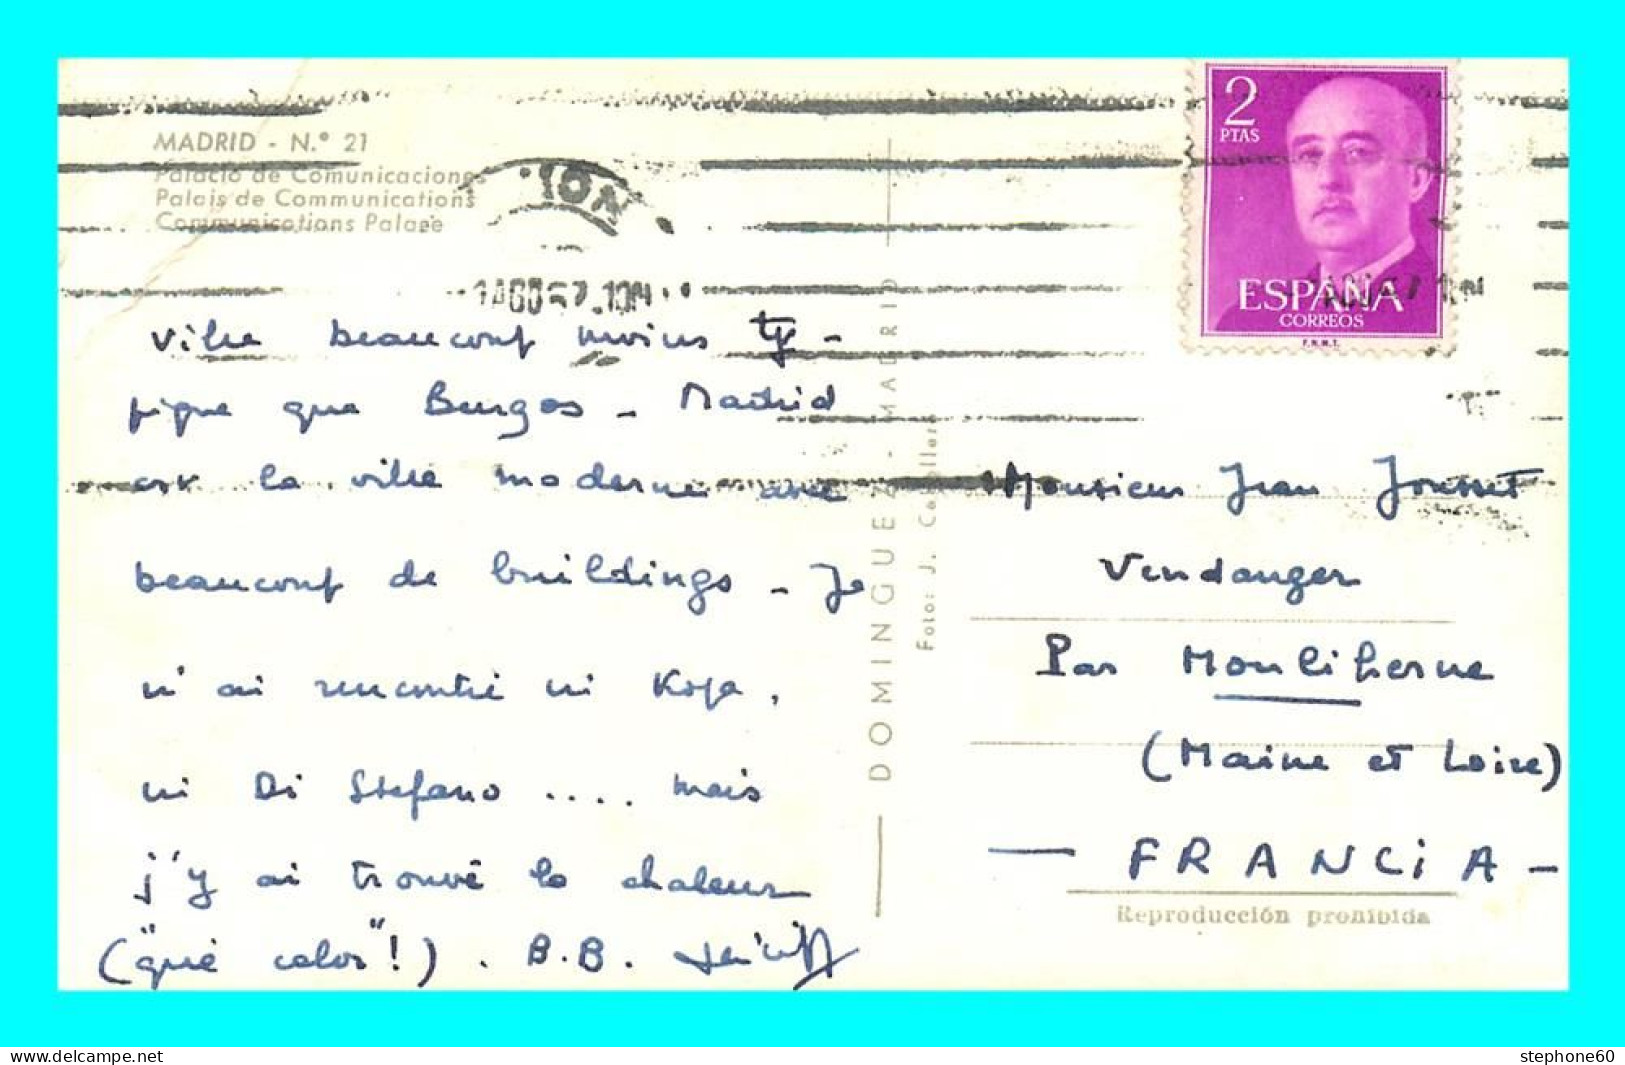 MADRID - N.º 21
Palacio de Comunicaciones
Palais de Communications
Communications Palace
2
PTAS
ESPAÑA
CORREOS
F.N.M.T.
Ville beaucoup moins ty-
pique que Burgos - Madrid
est la ville moderne avec
beaucoup de buildings - Je
n'ai rencontré ni Kopa,
ni Di Stefano .... mais
j'y ai trouvé la chaleur
("qué calor"!) . B.B.
DOMINGUEZ - MADRID
Foto: J.
Monsieur Jean Jousset
Vendanger
Par Mouliherne
(Maine et Loire)
- FRANCiA -
Reproducción prohibida
stephone60